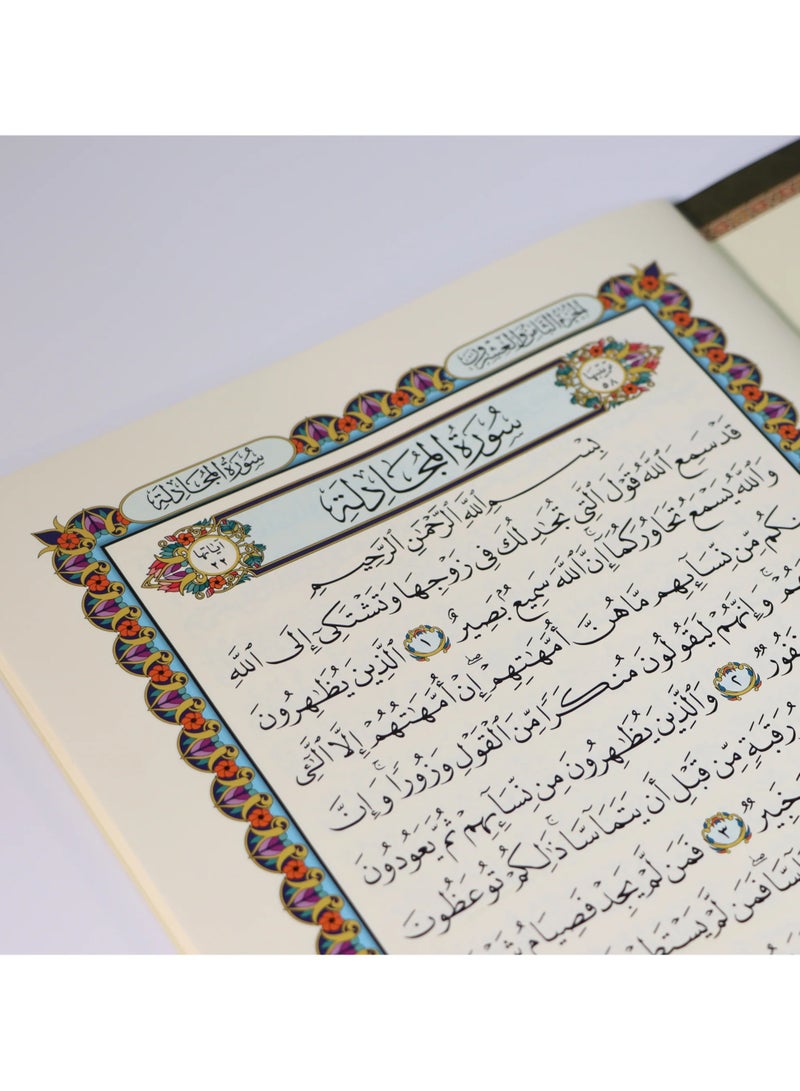 الجزء الثامن والعشرون
سورة المجادلة
ترتيبها ٥٨
سُورَةُ المُجَادلَةِ
آياتها ٢٢
بِسْمِ ٱللَّهِ ٱلرَّحْمَٰنِ ٱلرَّحِيمِ
قَدْ سَمِعَ ٱللَّهُ قَوْلَ ٱلَّتِي تُجَٰدِلُكَ فِي زَوْجِهَا وَتَشْتَكِيٓ إِلَى ٱللَّهِ
وَٱللَّهُ يَسْمَعُ تَحَاوُرَكُمَآ إِنَّ ٱللَّهَ سَمِيعُۢ بَصِيرٌ ١ ٱلَّذِينَ يُظَٰهِرُونَ
نكُم مِّن نِّسَآئِهِم مَّا هُنَّ أُمَّهَٰتِهِمۡۖ إِنۡ أُمَّهَٰتُهُمۡ إِلَّا ٱلَّٰٓـِٔي
هُمۡۚ وَإِنَّهُمۡ لَيَقُولُونَ مُنكَرٗا مِّنَ ٱلۡقَوۡلِ وَزُورٗاۚ وَإِنَّ
فُورٞ ٢ وَٱلَّذِينَ يُظَٰهِرُونَ مِن نِّسَآئِهِمۡ ثُمَّ يَعُودُونَ
رَقَبَةٖ مِّن قَبۡلِ أَن يَتَمَآسَّاۚ ذَٰلِكُمۡ تُوعَظُونَ
خَبِيرٞ ٣ فَمَن لَّمۡ يَجِدۡ فَصِيَامُ
آسَّاۖ فَمَن لَّمۡ يَسۡتَطِ